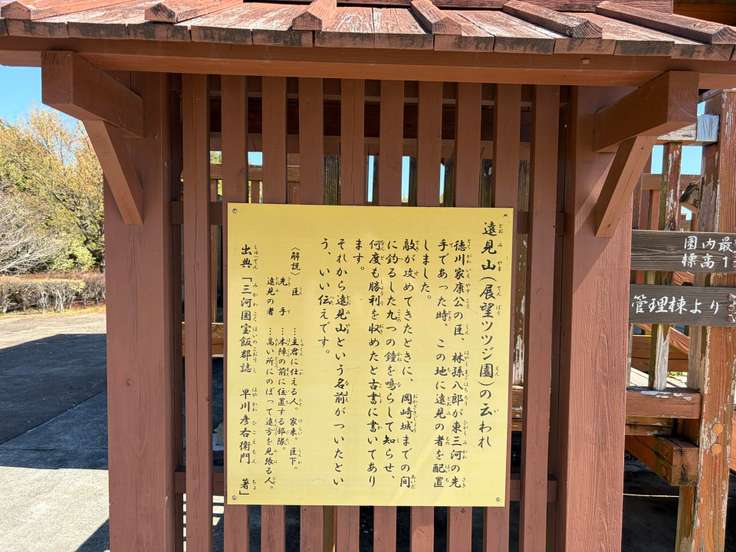 遠見山(展望ツツジ園)の云われ
徳川家康公の臣、林孫八郎が東三河の先
手であった時、この地に遠見の者を配置
しました。
敵が攻めてきたときに、岡崎城までの間
に釣るした九つの鐘を鳴らして知らせ、
何度も勝利を収めたと古書に書いてあり
ます。
それから遠見山という名前がついたとい
う、いい伝えです。
〈解説〉臣 …主君に仕える人。家来。臣下。
先手 …本陣の前に位置する部隊。
遠見の者 …高い所にのぼって遠方を見張る人。
出典「三河国宝飯郡誌 早川彦右衛門 著」
園内最
標高1
管理棟より